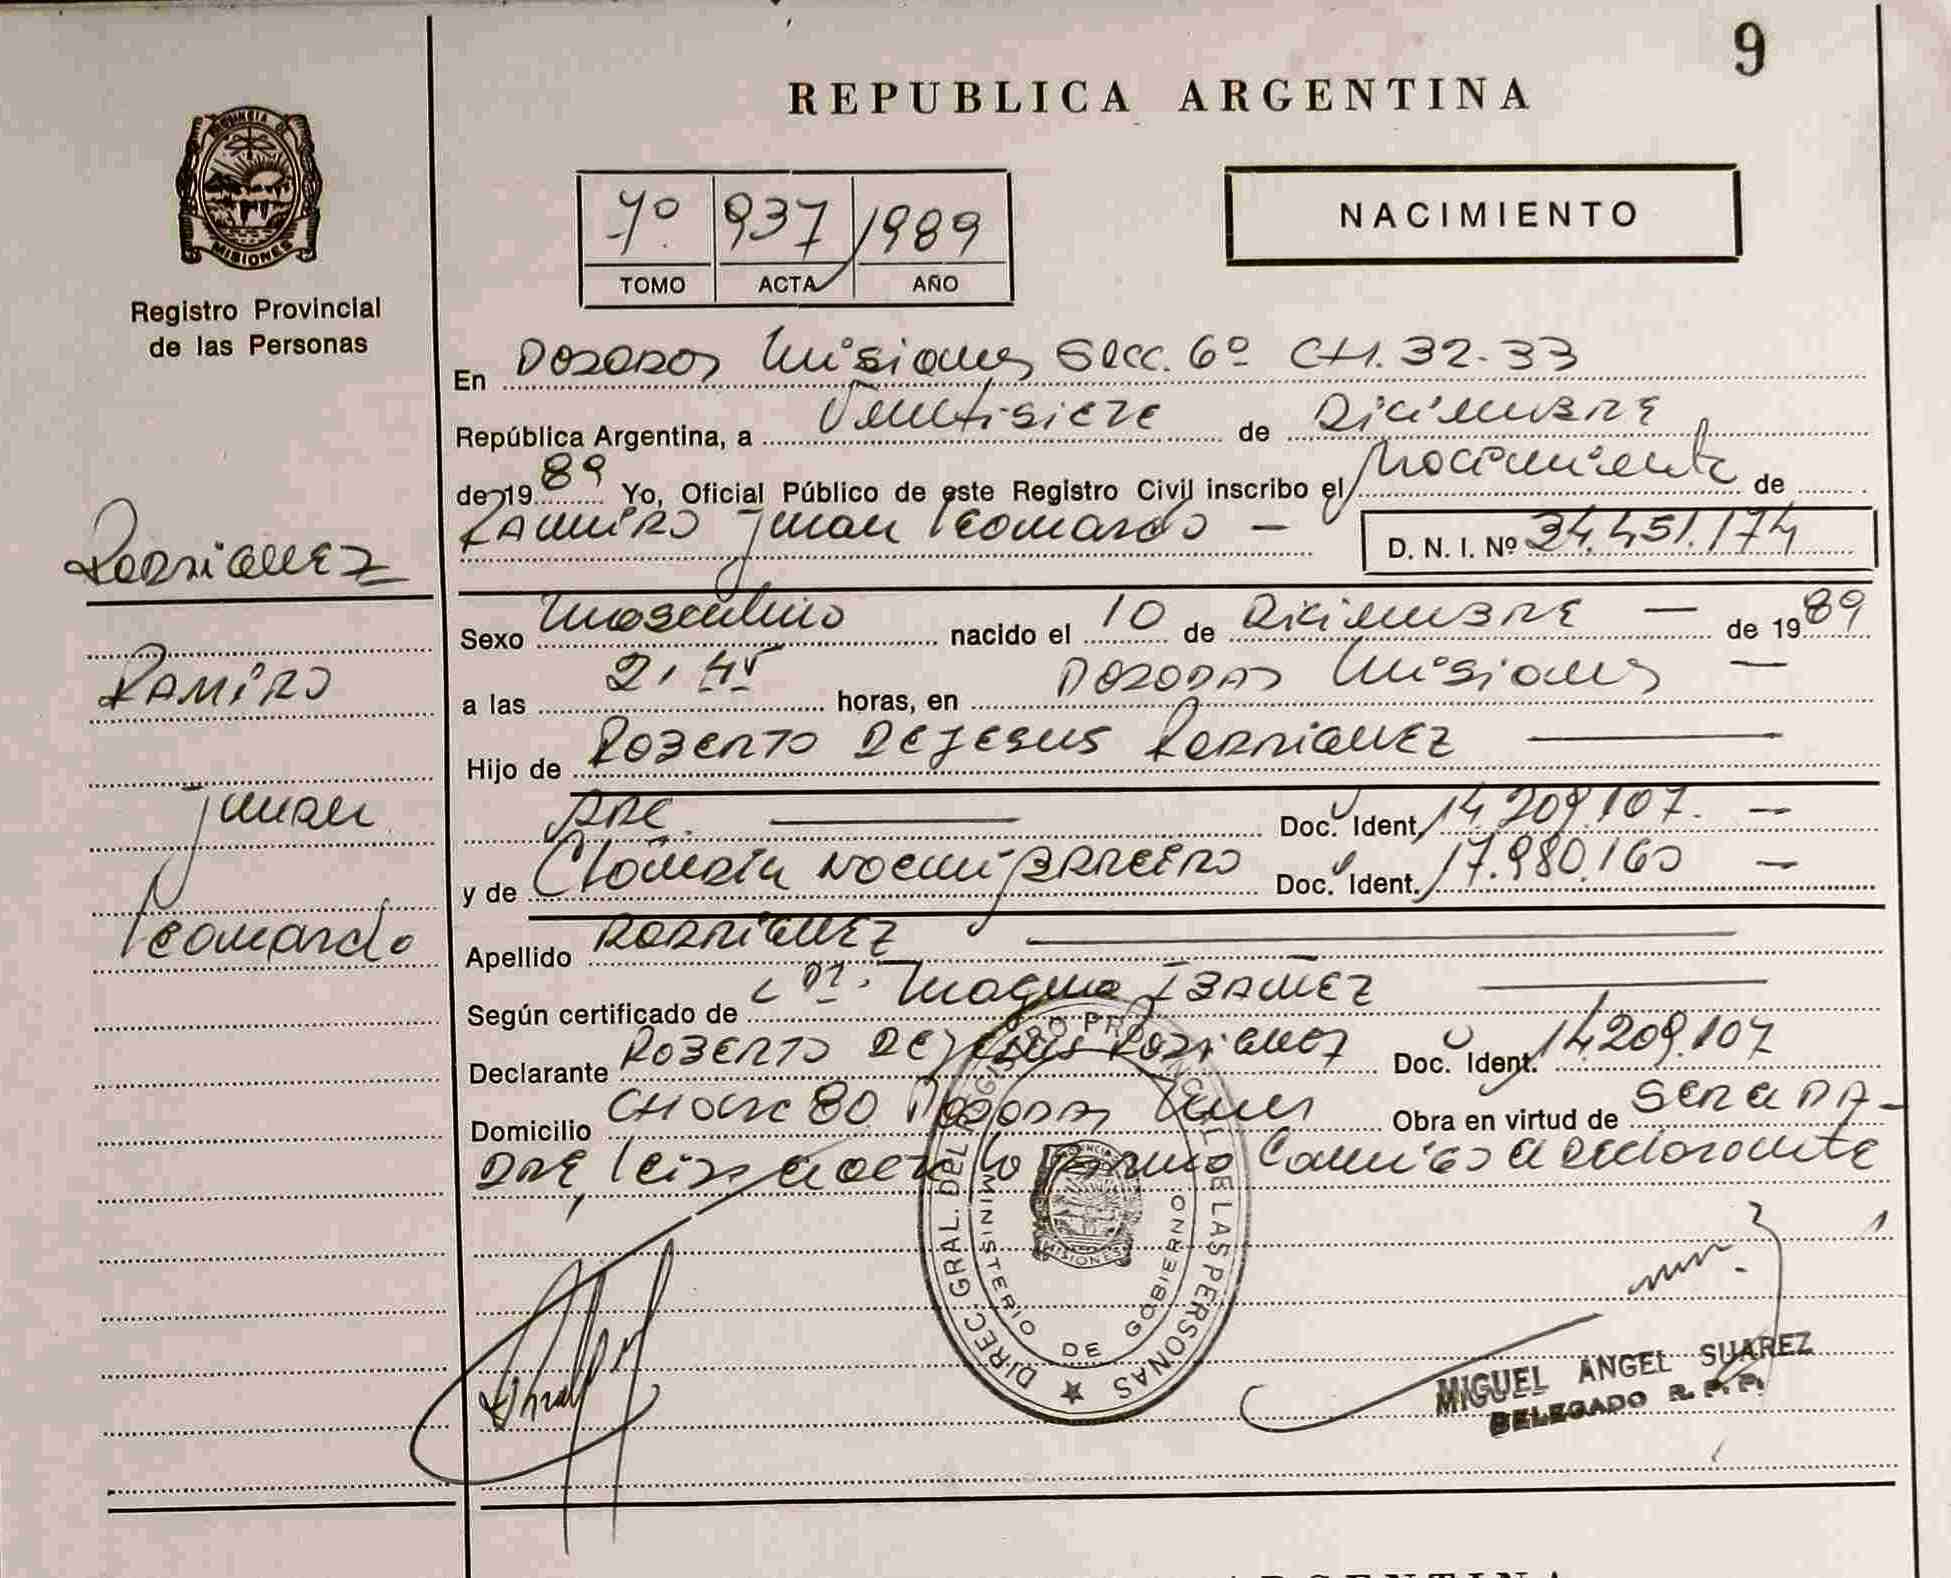 9
REPUBLICA ARGENTINA
PROVINCIA DE MISIONES
Registro Provincial
de las Personas
7º 937 1989
TOMO ACTA AÑO
NACIMIENTO
En Posadas Misiones Secc. 6º CH. 32-33
República Argentina, a Veintisiete de Diciembre
de 19 89 Yo, Oficial Público de este Registro Civil inscribo el Nacimiento de
Ramiro Juan Leonardo — D. N. I. Nº 34.451.174
Rodriguez
Ramiro
Juan
Leonardo
Sexo Masculino nacido el 10 de Diciembre — de 19 89
a las 2,45 horas, en Posadas Misiones —
Hijo de Roberto DeJesus Rodriguez —
Doc. Ident. 14.209.107. —
y de Claudia Noemi Barreiro Doc. Ident. 17.980.160 —
Apellido Rodriguez —
Según certificado de Ibañez —
Declarante Roberto DeJesus Rodriguez Doc. Ident. 14.209.107
Domicilio Chacra 80 Posadas Obra en virtud de ser el pa-
dre, leida el acta la firma conmigo el declarante
DIREC. GRAL. DEL REGISTRO PROVINCIAL DE LAS PERSONAS
MINISTERIO DE GOBIERNO
MISIONES
MIGUEL ANGEL SUAREZ
DELEGADO R. P. P.